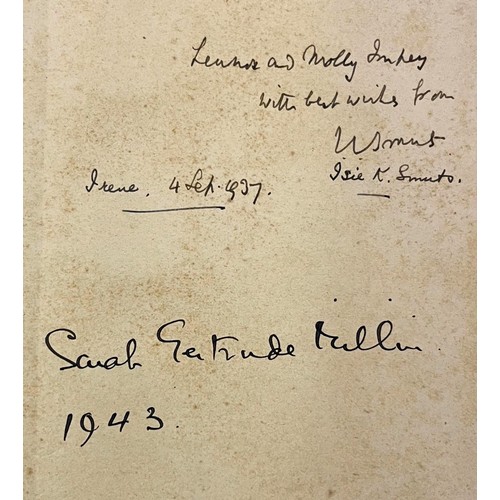 Lennox and Molly Impey
with best wishes from
JCSmuts.
Isie K. Smuts.
Irene. 4 Sep. 1937.
Sarah Gertrude Millin
1943.